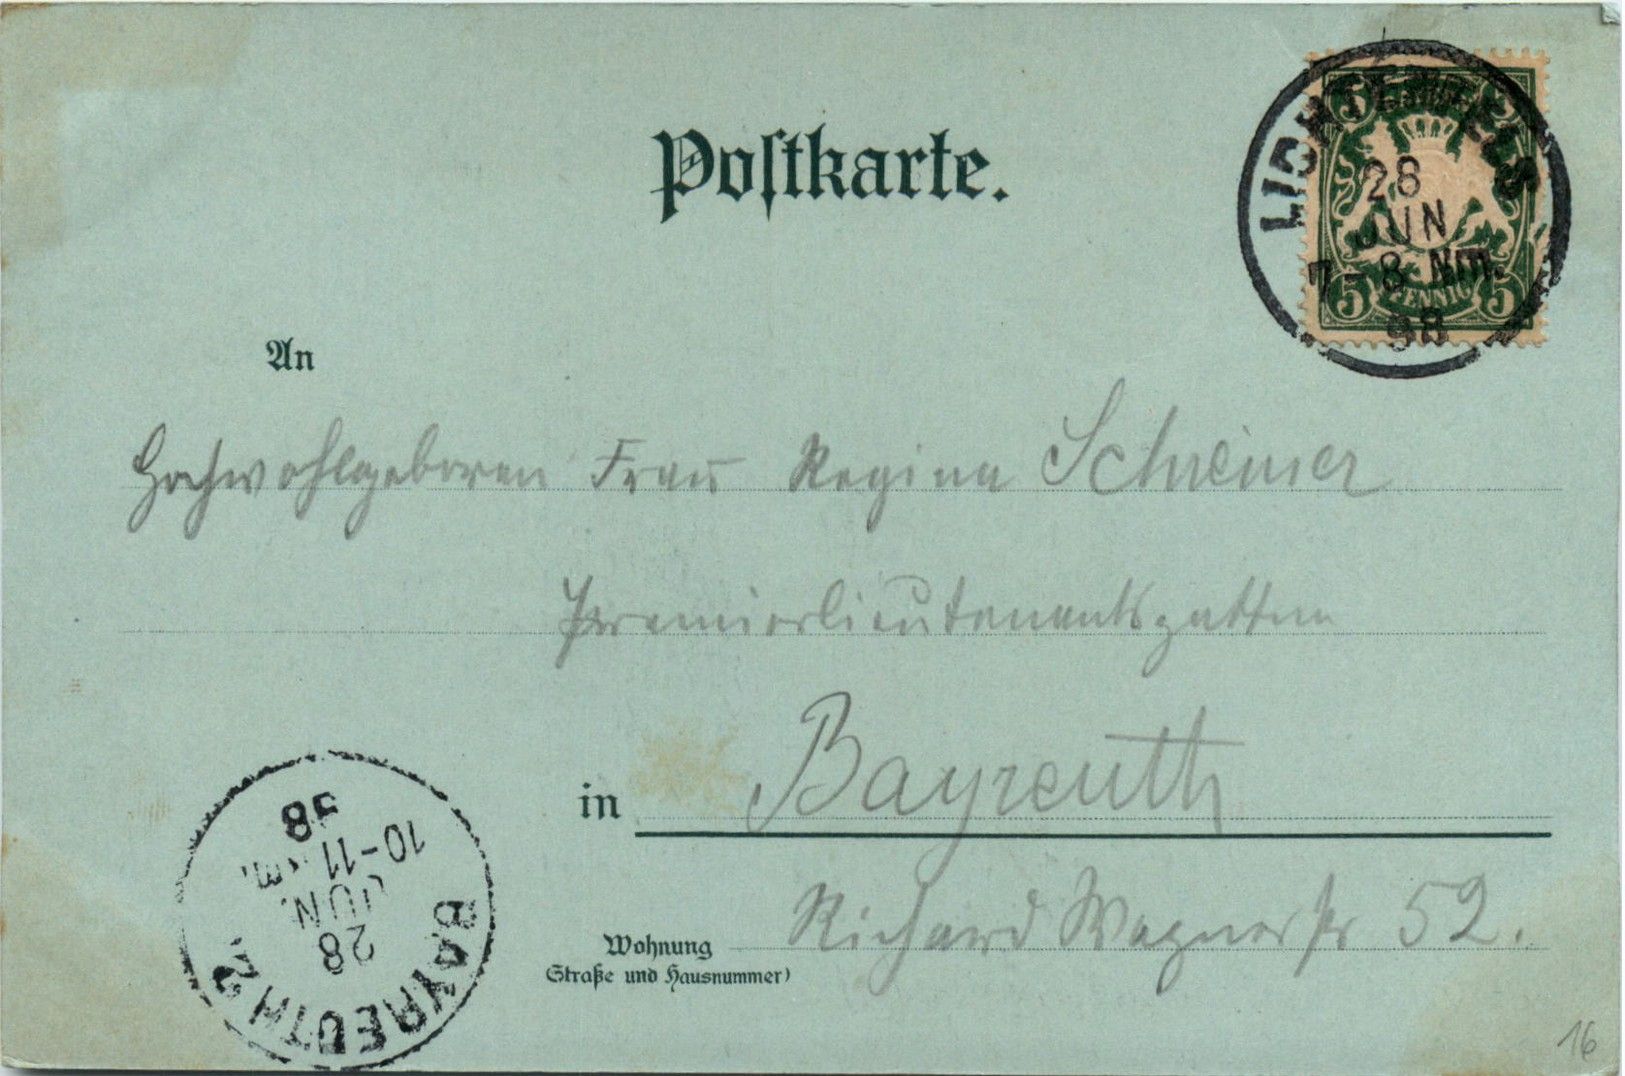 Postkarte.
LICHTENFELS
28
JUN
7-8 Nm.
98
5 5
5 PFENNIG 5
An
Hochwohlgeboren Frau Regina Schreiner
Premierlieutenantsgattin
in Bayreuth
Wohnung Richard Wagnerstr 52.
(Straße und Hausnummer)
BAYREUTH 2.
28
JUN.
10-11 Nm.
98
16